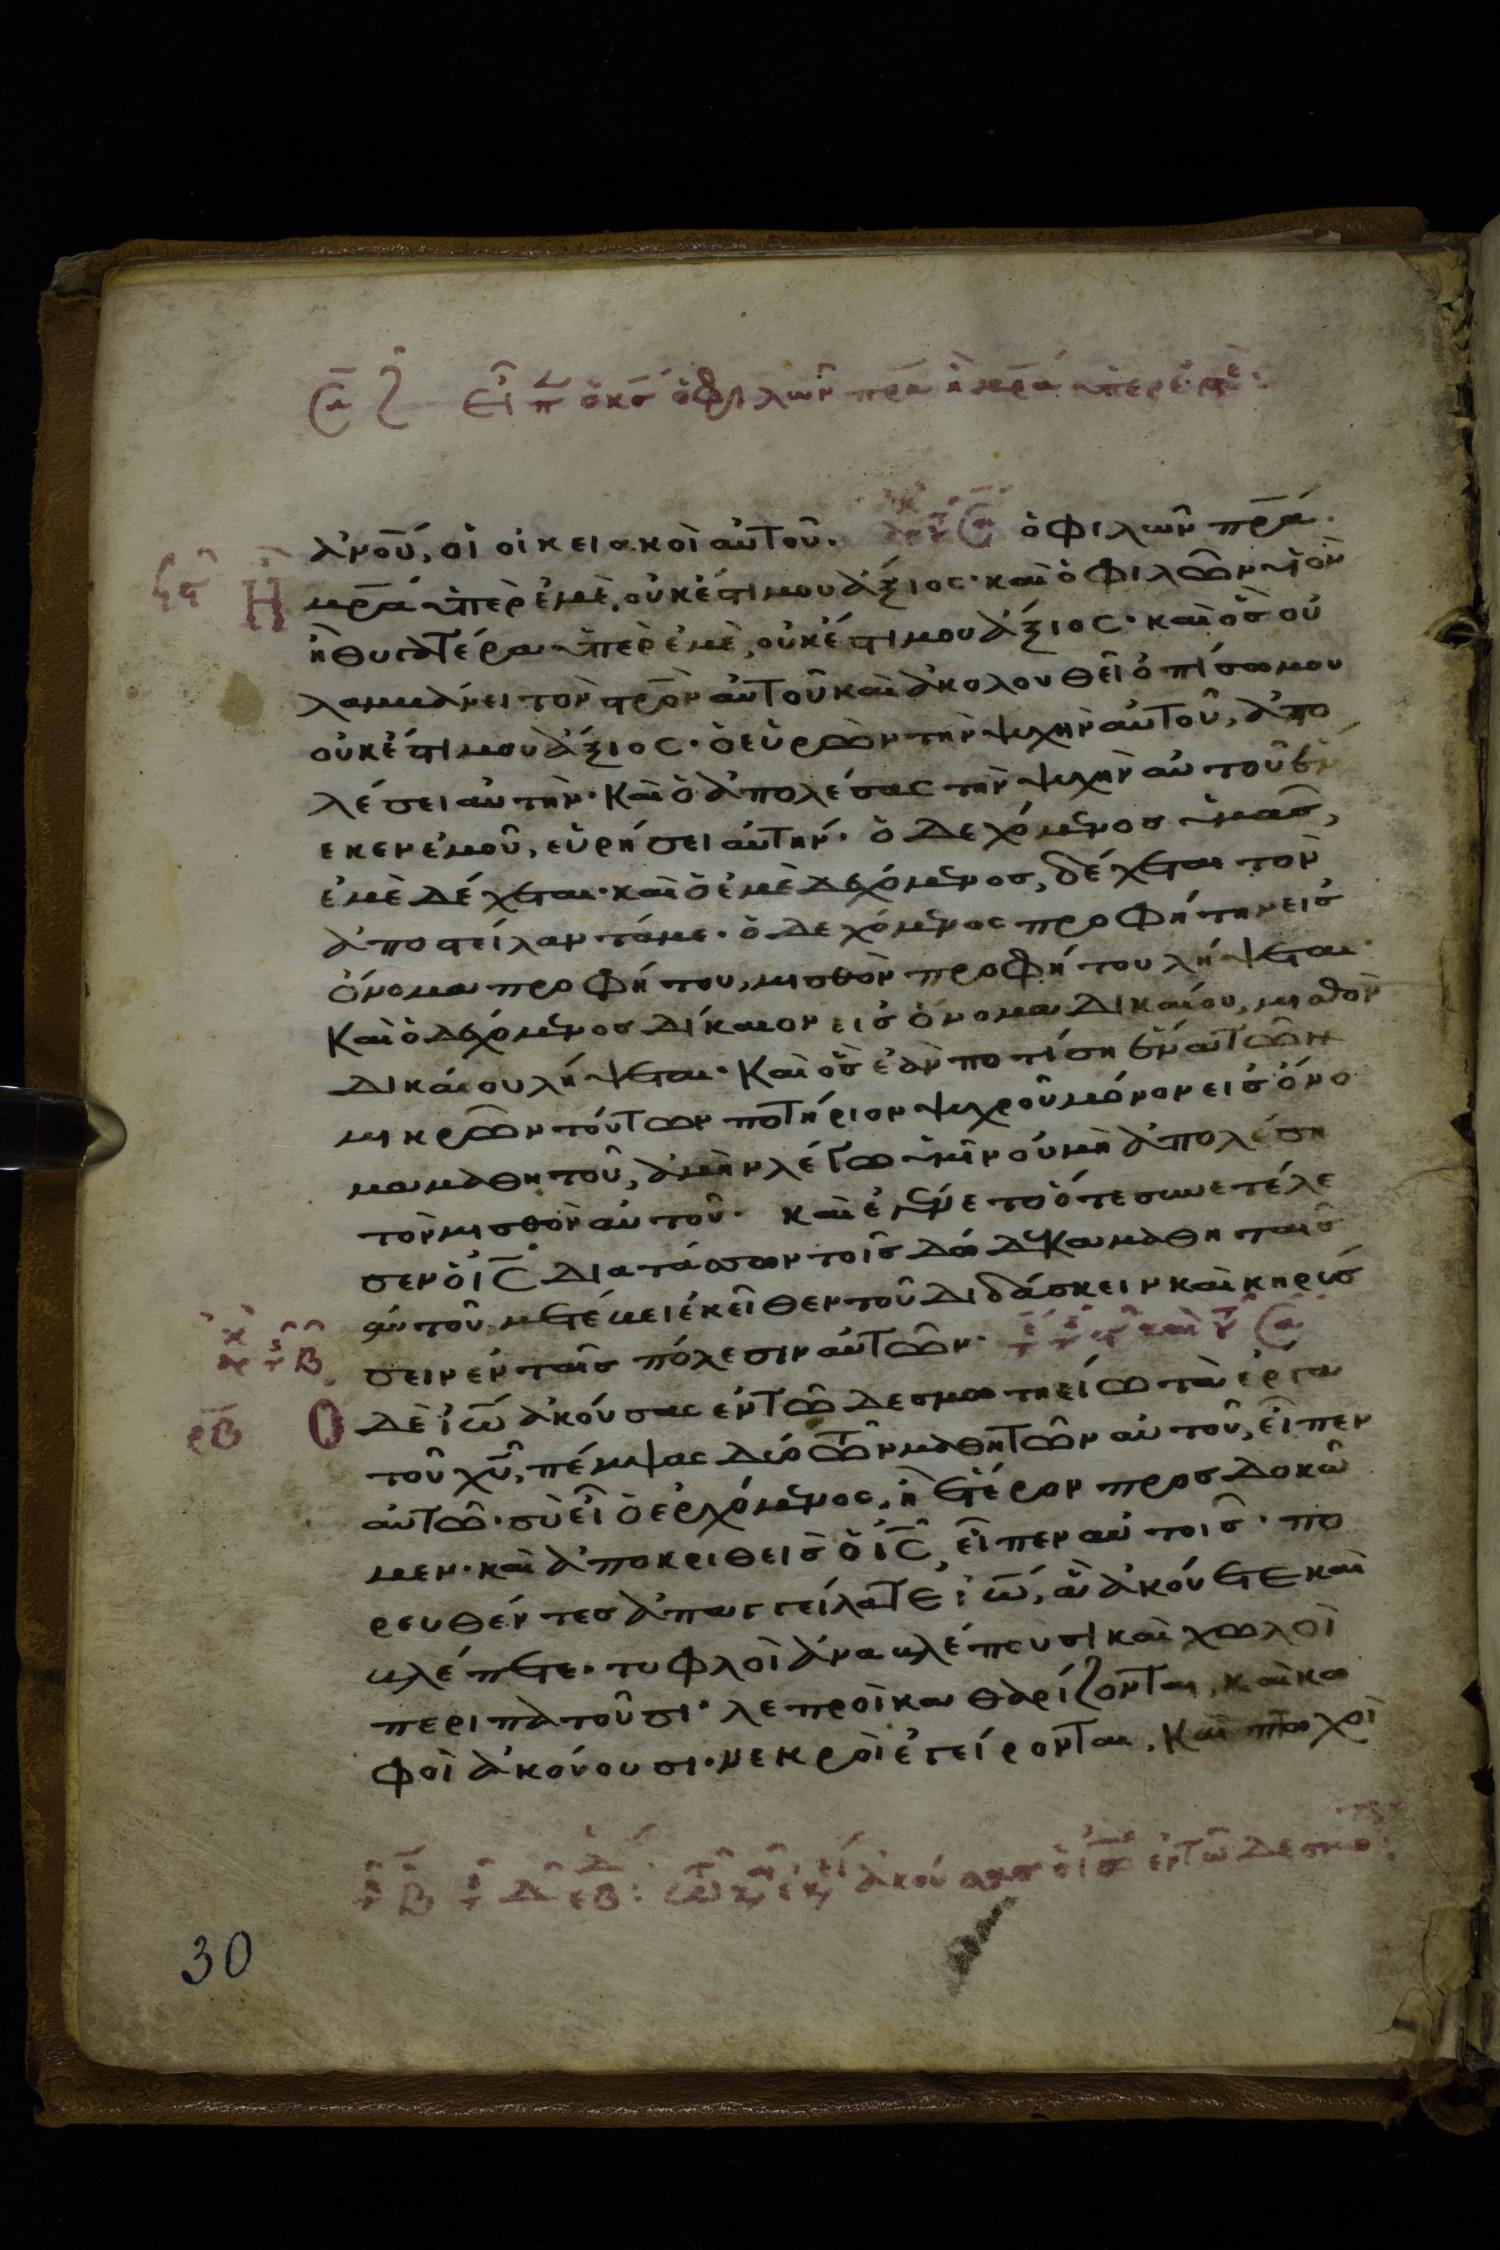 ὁ κς ὁ φιλων πρα η μρα υπερ εμε:
ἀνοῦ, οἱ οἰκειακοὶ αὐτοῦ. ὁ φιλῶν πρα
Ἢ μρα ὑπὲρ ἐμὲ, οὐκ ἔστι μου ἄξιος· καὶ ὁ φιλῶν υἱὸν
ἢ θυγατέρα ὑπὲρ ἐμὲ, οὐκ ἔστι μου ἄξιος· καὶ ὃς οὐ
λαμβάνει τὸν σρον αὐτοῦ καὶ ἀκολουθεῖ ὀπίσω μου
οὐκ ἔστι μου ἄξιος· ὁ εὑρὼν τὴν ψυχὴν αὐτοῦ, ἀπο
λέσει αὐτὴν· καὶ ὁ ἀπολέσας τὴν ψυχὴν αὐτοῦ ἕν
εκεν ἐμοῦ, εὑρήσει αὐτήν· ὁ δεχόμενος ὑμᾶς,
ἐμὲ δέχεται· καὶ ὁ ἐμὲ δεχόμενος, δέχεται τὸν
ἀποστείλαντά με· ὁ δεχόμενος προφήτην εἰς
ὄνομα προφήτου, μισθὸν προφήτου λήψεται·
καὶ ὁ δεχόμενος δίκαιον εἰς ὄνομα δικαίου, μισθὸν
δικαίου λήψεται· καὶ ὃς ἐὰν ποτίση ἕνα τῶν
μικρῶν τούτων ποτήριον ψυχροῦ μόνον εἰς ὄνο
μα μαθητοῦ, ἀμὴν λέγω ὑμῖν οὐ μὴ ἀπολέση
τὸν μισθὸν αὐτοῦ· καὶ ἐγένετο ὅτε συνετέλε
σεν ὁ ις διατάσσων τοῖς δώδεκα μαθηταῖς
αὐτοῦ, μετέβει ἐκεῖθεν τοῦ διδάσκειν καὶ κηρύσ
σειν ἐν ταῖς πόλεσιν αὐτῶν·
ρβ Ὁ δὲ ἰω ἀκούσας ἐν τῶ δεσμωτηείω τὰ ἔργα
τοῦ χυ, πέμψας δύο τῶν μαθητῶν αὐτοῦ, εἶπεν
αὐτῶ· σὺ εἶ ὁ ἐρχόμενος, ἢ ἕτερον προσδοκῶ
μεν· καὶ ἀποκριθεὶς ὁ ις, εἶπεν αὐτοῖς· πο
ρευθέντες ἀπαγγείλατε ἰω, ἃ ἀκούετε καὶ
βλέπετε· τυφλοὶ ἀναβλέπουσι καὶ χωλοὶ
περιπατοῦσι· λεπροὶ καθαρίζονται, καὶ κω
φοὶ ἀκούουσι· νεκροὶ ἐγείρονται, καὶ πτωχοὶ
ἀκούσας ὁ ις ἐν τῶ δεσμω:
30